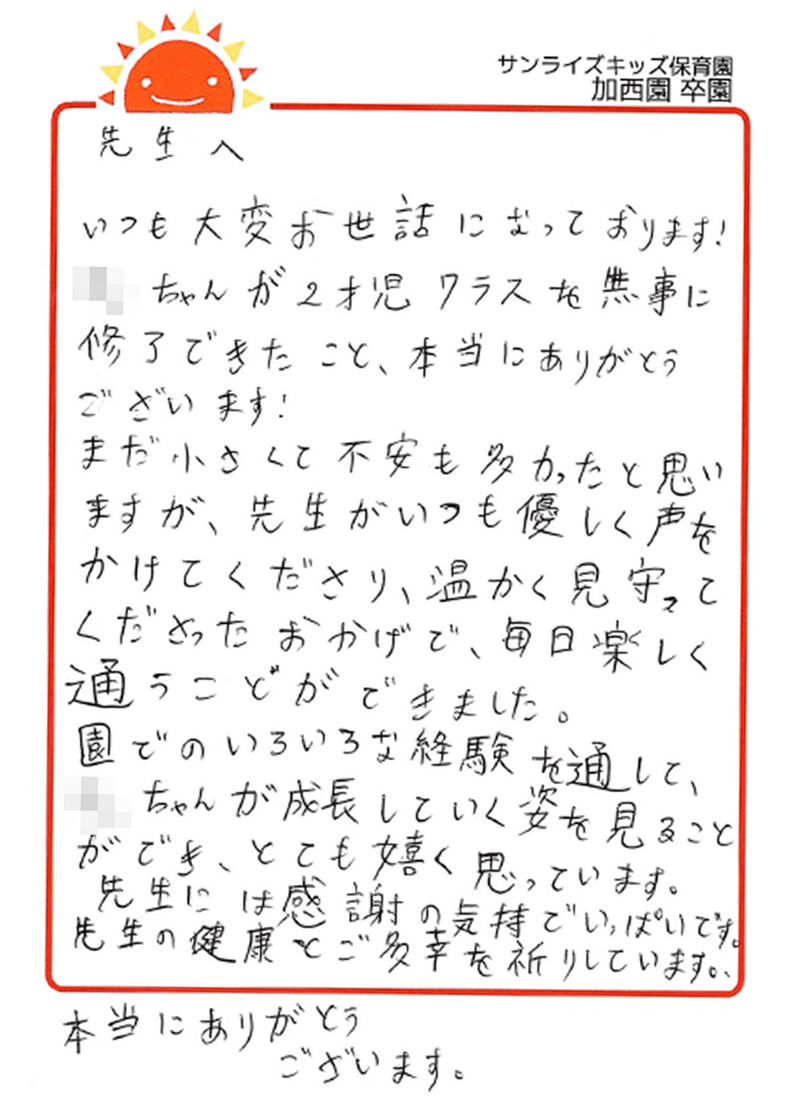 サンライズキッズ保育園
加西園 卒園
先生へ
いつも大変お世話になっております!
ちゃんが2才児クラスを無事に
修了できたこと、本当にありがとう
ございます!
まだ小さくて不安も多かったと思い
ますが、先生がいつも優しく声を
かけてくださり、温かく見守って
くださったおかげで、毎日楽しく
通うことができました。
園でのいろいろな経験を通して、
ちゃんが成長していく姿を見ること
ができ、とても嬉く思っています。
先生には感謝の気持でいっぱいです。
先生の健康とご多幸を祈りしています。
本当にありがとう
ございます。